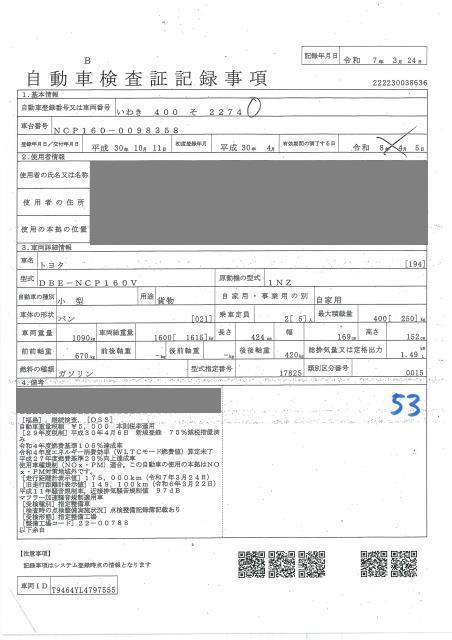 B
記録年月日 令和 7年 3月 24日
自動車検査証記録事項
222230038636
1.基本情報
自動車登録番号又は車両番号 いわき 400 そ 2274
車台番号 NCP160-0098358
登録年月日/交付年月日 平成 30年 10月 11日 初度登録年月 平成 30年 4月 有効期間の満了する日 令和 8年 4月 5日
2.使用者情報
使用者の氏名又は名称
使用者の住所
使用の本拠の位置
3.車両詳細情報
車名 トヨタ [194]
型式 DBE-NCP160V 原動機の型式 1NZ
自動車の種別 小型 用途 貨物 自家用・事業用の別 自家用
車体の形状 バン [021] 乗車定員 2[ 5]人 最大積載量 400[ 250]kg
車両重量 1090kg 車両総重量 1600[ 1615]kg 長さ 424cm 幅 169cm 高さ 152cm
前前軸重 670kg 前後軸重 -kg 後前軸重 -kg 後後軸重 420kg 総排気量又は定格出力 1.49 L
燃料の種類 ガソリン 型式指定番号 17825 類別区分番号 0015
4.備考
53
[福島], 継続検査, [OSS]
自動車重量税額 ¥5,000 本則税率適用
[29年度税制]平成30年4月6日 新規登録 75%減税措置済
み
令和4年度燃費基準105%達成車
令和4年度エネルギー消費効率(WLTCモード燃費値)算定未了
平成27年度燃費基準20%向上達成車
使用車種規制(NOx・PM)適合, この自動車の使用の本拠はNO
x・PM対策地域外です。
[走行距離計表示値]175,000km(令和7年3月24日)
[旧走行距離計表示値]149,100km(令和6年3月22日)
平成11年騒音規制車, 近接排気騒音規制値 97dB
マフラー加速騒音規制適用車
[受検種別]指定整備車
[検査時の点検整備実施状況]点検整備記録簿記載あり
[受検形態]指定整備工場
[整備工場コード]22-00788
以下余白
【注意事項】
記録事項はシステム登録時点の情報となります
車両ID T9464YL4797555